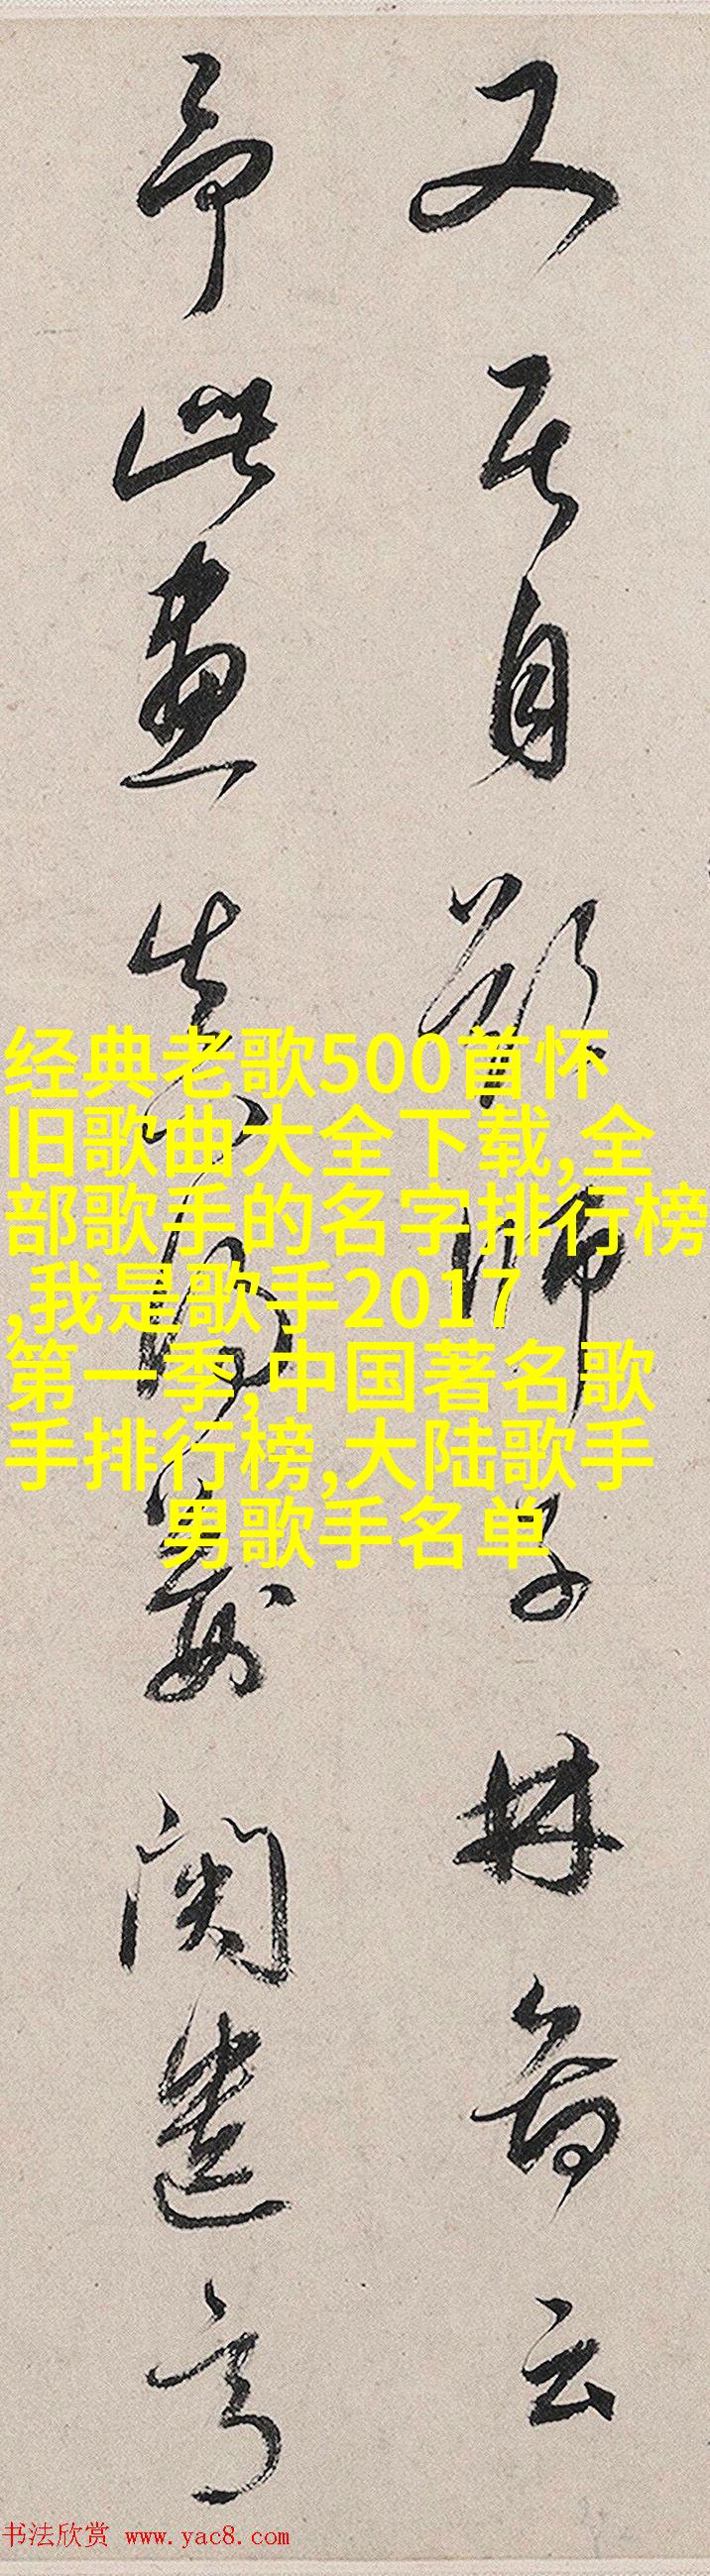 又其自题师子林图云
予此画
关遗意
经典老歌500首怀
旧歌曲大全下载,全
部歌手的名字排行榜
,我是歌手2017
第一季,中国著名歌
手排行榜,大陆歌手
男歌手名单
书法欣赏 www.yac8.com